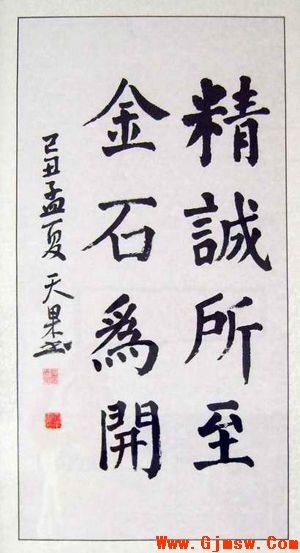 精誠所至
金石為開
己丑孟夏 天果书
Www.Gjmsw.Com